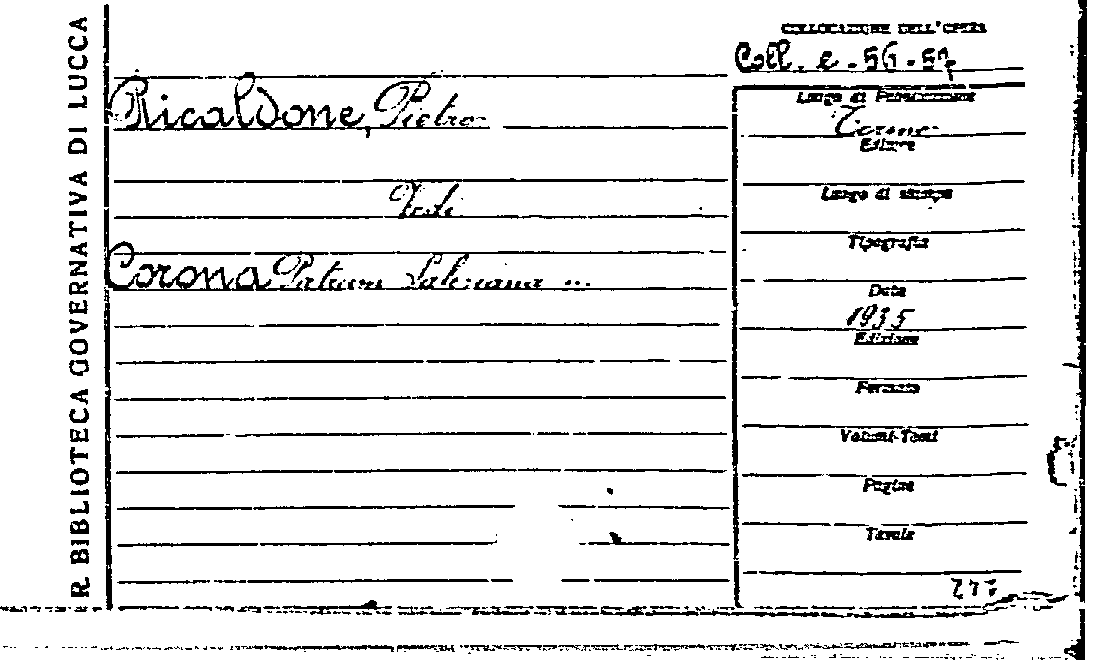 R. BIBLIOTECA GOVERNATIVA DI LUCCA
COLLOCAZIONE DELL'OPERA
Coll. e - 56 - 57
Ricaldone, Pietro
Vedi
Corona Patrum Salesiana ...
Luogo di Pubblicazione
Torino
Editore
Luogo di stampa
Tipografia
Data
1935
Edizione
Formato
Volumi-Tomi
Pagine
Tavole